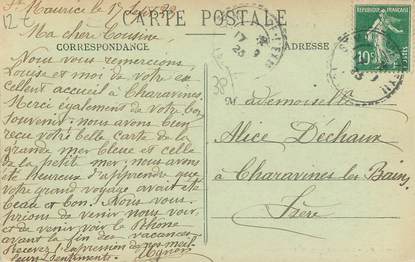 12 €
St Maurice le 17 Sept 23
CARTE POSTALE
Ma chère Cousine
CORRESPONDANCE
ADRESSE
Nous vous remercions,
Louise et moi de votre ex-
cellent accueil à Charavines.
Merci également de votre bon
souvenir; nous avons bien
reçu votre belle carte de la
grande mer bleue et celle
de la petite mer; nous avons
été heureux d'apprendre que
votre grand voyage avait été
beau et bon! Nous vous
prions de venir nous voir,
et de venir voir le Rhône
avant la fin des vacances.
Recevez l'expression de nos meil-
leurs sentiments.
Mademoiselle
Alice Déchaux
à Charavines les Bains
Isère
38
17 9
23
RÉPUBLIQUE FRANÇAISE
10c
POSTES